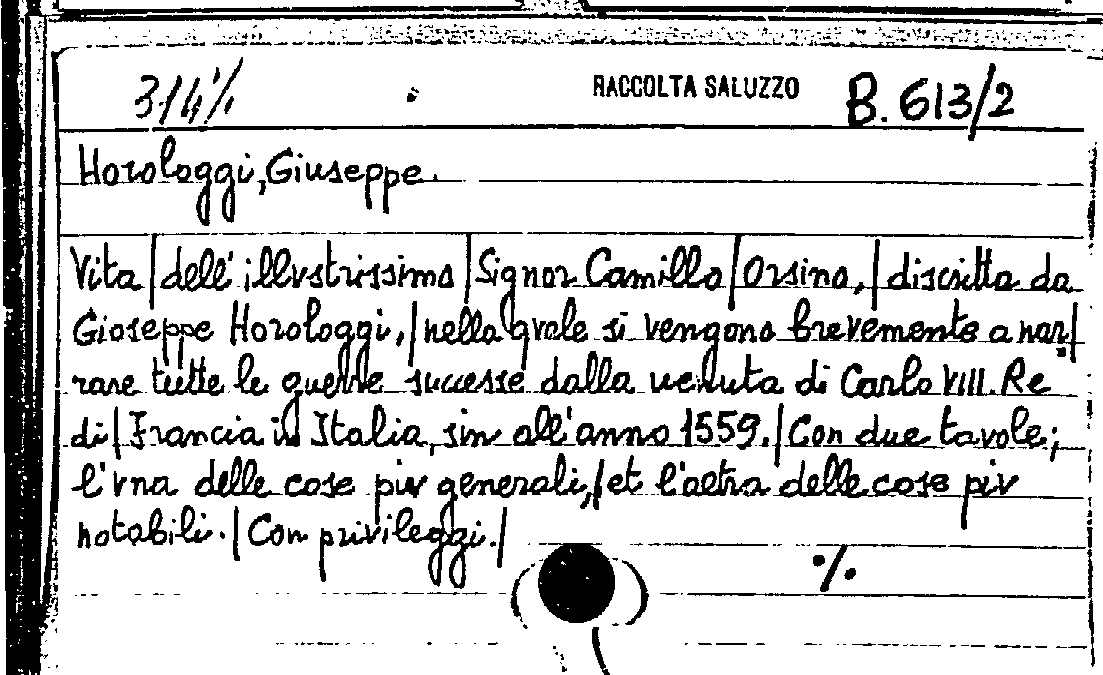 314 ./. RACCOLTA SALUZZO B. 613/2
Horologgi, Giuseppe.
Vita | dell' illvstrissimo | Signor Camillo | Orsino, | discritta da
Gioseppe Horologgi, | nella qvale si vengono brevemente a nar |
rare tutte le guerre successe dalla venuta di Carlo VIII. Re
di | Francia in Italia, sin all'anno 1559. | Con due tavole;
l'vna delle cose piv generali, | et l'altra delle cose piv
notabili. | Con privileggi. |
./.